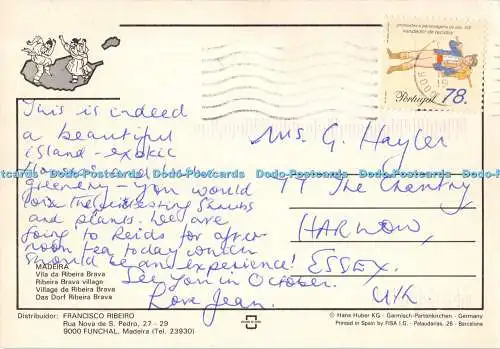 This is indeed
a beautiful
island - exotic
flowers and
greenery - you would
love the interesting shrubs
and plants. We are
going to Reids for after
noon tea today which
should be an experience!
See you in October.
Love Jean.
Mrs. G. Hayler
77 The Chantry
HARLOW,
ESSEX.
U.K
vendedor de tecidos
Portugal 78.
Dodo-Postcards Dodo-Postcards Dodo-Postcards Dodo-Postcards
MADEIRA
Vila da Ribeira Brava
Ribeira Brava village
Village de Ribeira Brava
Das Dorf Ribeira Brava
Distribuidor: FRANCISCO RIBEIRO
Rua Nova de S. Pedro, 27 - 29
9000 FUNCHAL, Madeira (Tel. 23930)
© Hans Huber KG - Garmisch-Partenkirchen - Germany
Printed in Spain by FISA I.G. - Palaudarias, 26 - Barcelona